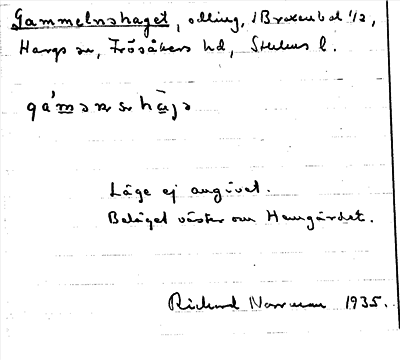 Gammelnshaget, odling, 1 Broxenbol 1/2,
Hargs sn, Frösåkers hd, Sthlms l.
Läge ej angivet.
Beläget väster om Hemgärdet.
Richard Norrman 1935.